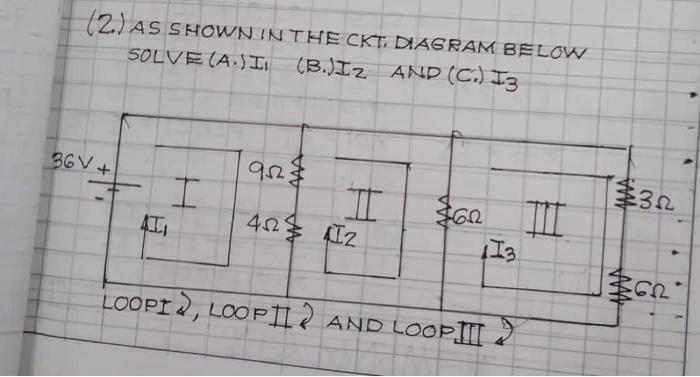 (2.) AS SHOWN IN THE CKT. DIAGRAM BELOW
SOLVE (A.) I1 (B.) I2 AND (C.) I3
36V + -
I
I1
9Ω
4Ω
II
I2
6Ω
III
I3
3Ω
6Ω
LOOP I ↻, LOOP II ↻ AND LOOP III ↻